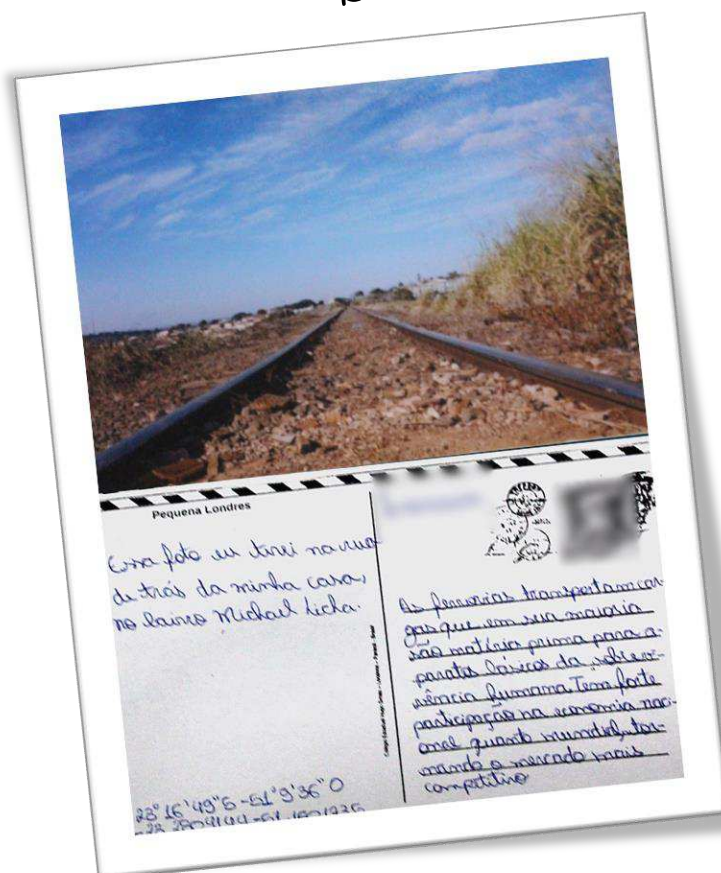 Pequena Londres
Essa foto eu tirei na rua
de trás da minha casa,
no bairro Michael Licha.
23° 16' 49"S -51° 9' 36" O
As ferrovias transportam car-
gas que em sua maioria
são matéria prima para a-
paratos básicos da sobrevi-
vência humana. Tem forte
participação na economia naci-
onal quanto mundial, tor-
nando o mercado mais
competitivo